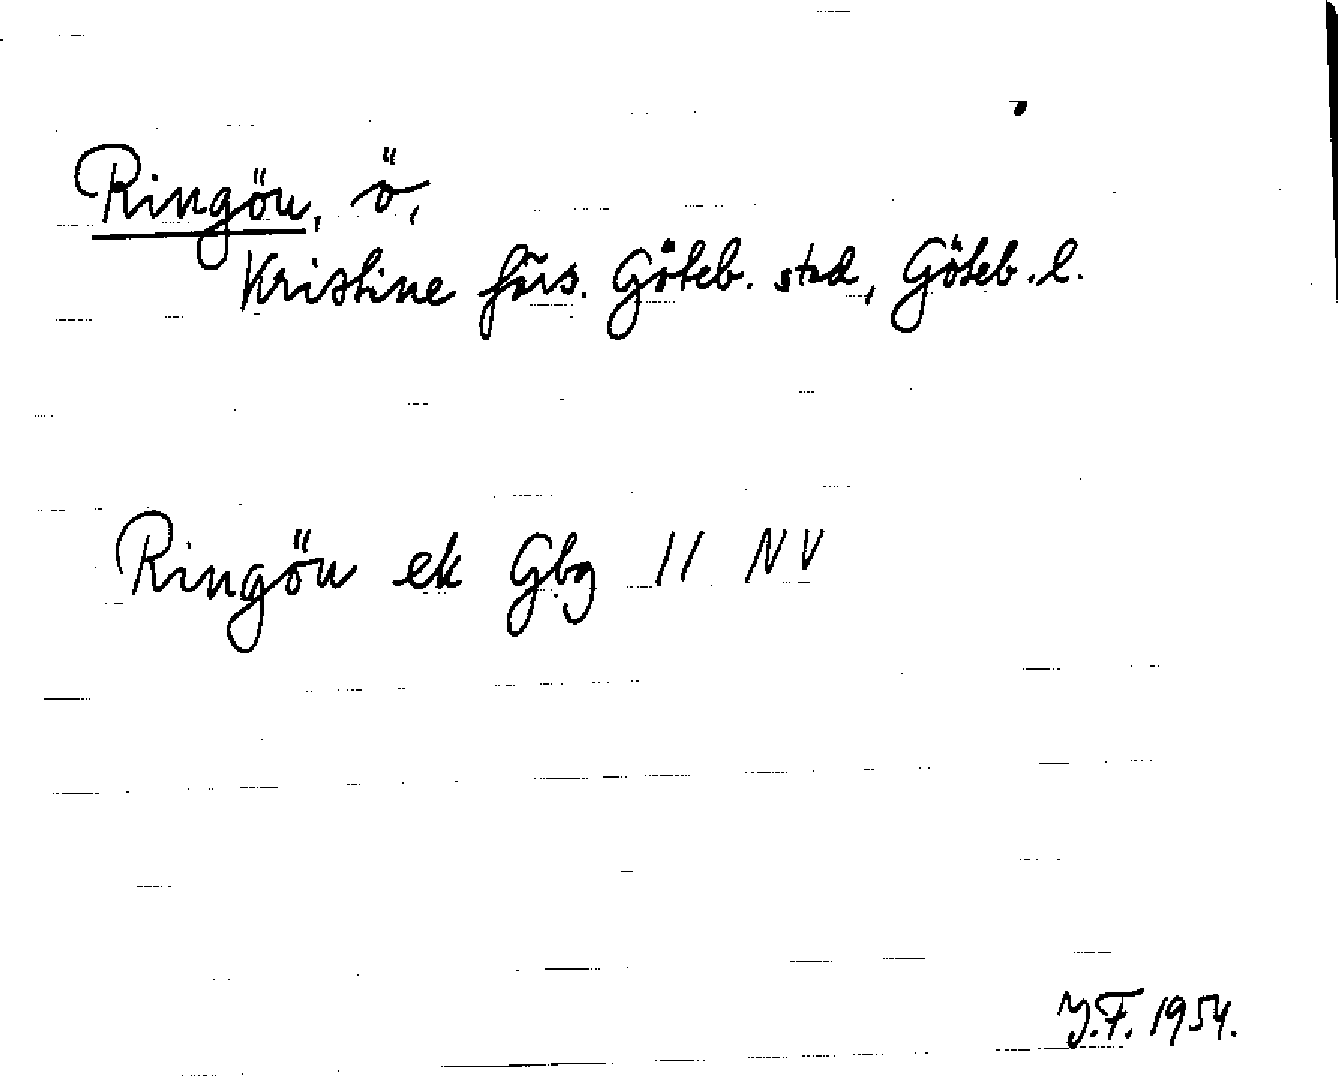 Ringön, ö,
Kristine förs. Göteb. stad, Göteb. l.
Ringön ek Gbg 11 NV
Y.F. 1954.